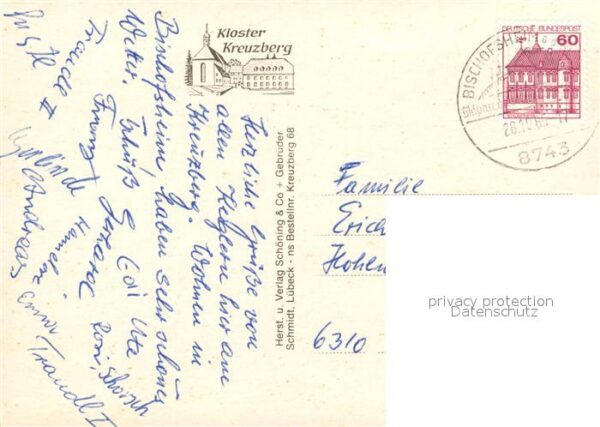 Kloster
Kreuzberg
Herzliche Grüße von
allen Keglern hier am
Kreuzberg. Wohnen in
Bischofsheim haben sehr schönes
Wetter. Gruß
Franz
Traudl II
Gerlinde
Andreas
Uta
Anna
Traudl I
Herst. u. Verlag Schöning & Co + Gebrüder
Schmidt, Lübeck - ns Bestellnr. Kreuzberg 68
DEUTSCHE BUNDESPOST
60
BISCHOFSHEIM
8743
Familie
Erich
Hohen
6310
privacy protection
Datenschutz